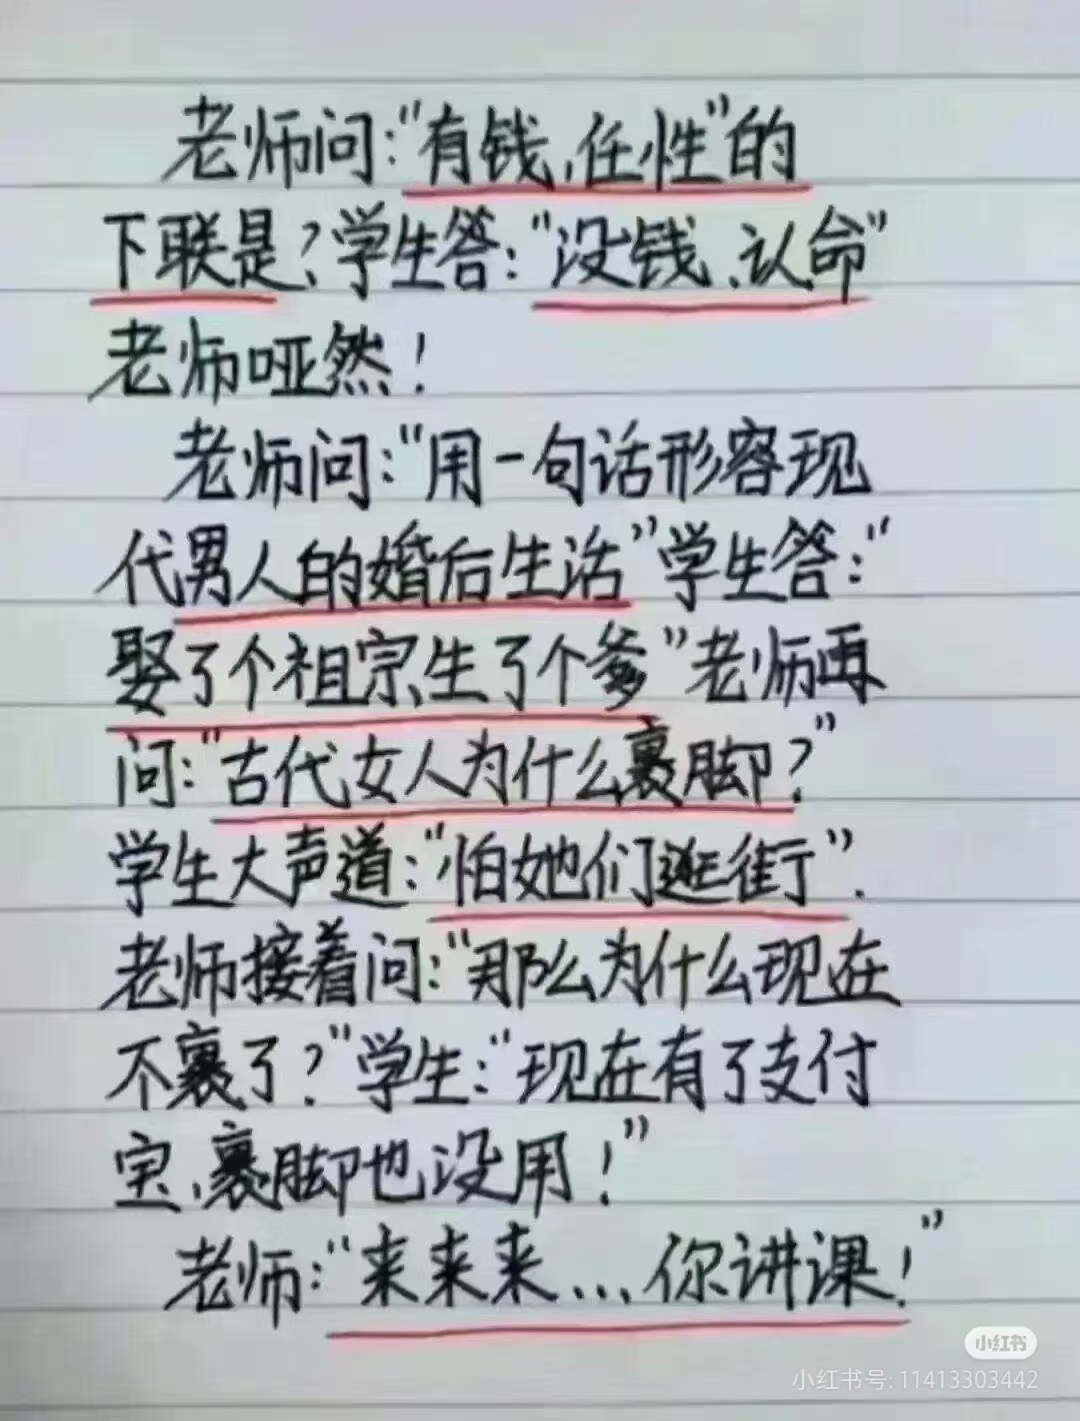 老师问:“有钱,任性”的
下联是?学生答:“没钱、认命”
老师哑然!
老师问:“用一句话形容现
代男人的婚后生活”学生答:“
娶了个祖宗,生了个爹”老师再
问:“古代女人为什么裹脚?”
学生大声道:“怕她们逛街”.
老师接着问:“那么为什么现在
不裹了?”学生:“现在有了支付
宝、裹脚也没用!”
老师:“来来来...你讲课!”
小红书
小红书号: 11413303442